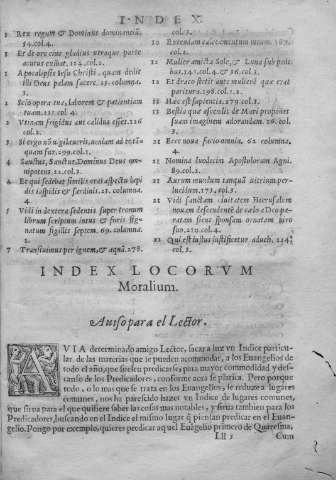 INDEX
1 Rex regum & Dominus dominantiũ.
54. col. 4.
1 Et de ore eius gladius utraque parte
acutus exibat. 124. col. 2.
1 Apocalypsis Iesu Christi, quam dedit
illi Deus palam facere. 25. columna.
3.
2 Scio opera tua, laborem & patientiam
tuam. 131. col. 4
3 Utinam frigidus aut calidus esses. 126
col. 1.
3
4 Sanctus, Sanctus, Dominus Deus omnipotens. 22. col. 3.
4 Et qui sedebat similis erat aspectu lapidis iaspidis & sardinis. 21. columna.
4.
5 Vidi in dextera sedentis super tronum
librum scriptum intus & foris signatum sigillis septem. 69. columna.
2.
7 Transivimus per ignem, & aquã. 278.
col. 3.
col. 2.
12 Mulier amicta Sole, & Luna sub pedibus. 141. col. 4. & 36. col. 3.
12 Et draco stetit ante mulierẽ quæ erat
paritura. 298. col. 1. 2.
13 Hæc est sapientia. 279. col. 3.
13 Bestia quæ ascendit de Mari proponet
suam imaginem adorandam. 26. col.
3.
21 Ecce nova facio omnia. 62. columna.
4.
21 Nomina duodecim Apostolorum Agni.
89. col. 2.
21 Aurum mundum tanquã vitrum perlucidum. 173. col. 3.
21 Vidi sanctam civitatem Hierusalem
novam descendentẽ de cælo a Deo paratam sicut sponsam ornatam viro
suo. 220. col. 4.
22 Qui est iustus iustificetur adhuc. 234
col. 3.
INDEX LOCORVM
Moralium.
Auiso para el Lector.
AVIA determinado amigo Lector, sacar a luz vn Indice particular, de las materias que se pueden acomodar, a los Euangelios de
todo el año, que se suelen predicar, para mayor commodidad y descanso de los Predicadores, conforme aora se platica. Pero porque
todo, o lo mas que se trata en los Euangelios, se reduze a lugares
comunes, nos ha parecido hazer vn Indice de lugares comunes,
que sirua para el que quisiere saber las cosas mas notables, y sirua tambien para los
Predicadores, buscando en el Indice el mismo lugar q̃ piensan predicar en el Euangelio. Pongo por exemplo, quieres predicar aquel Euãgelio primero de Quaresma,
Lll 3 Cum